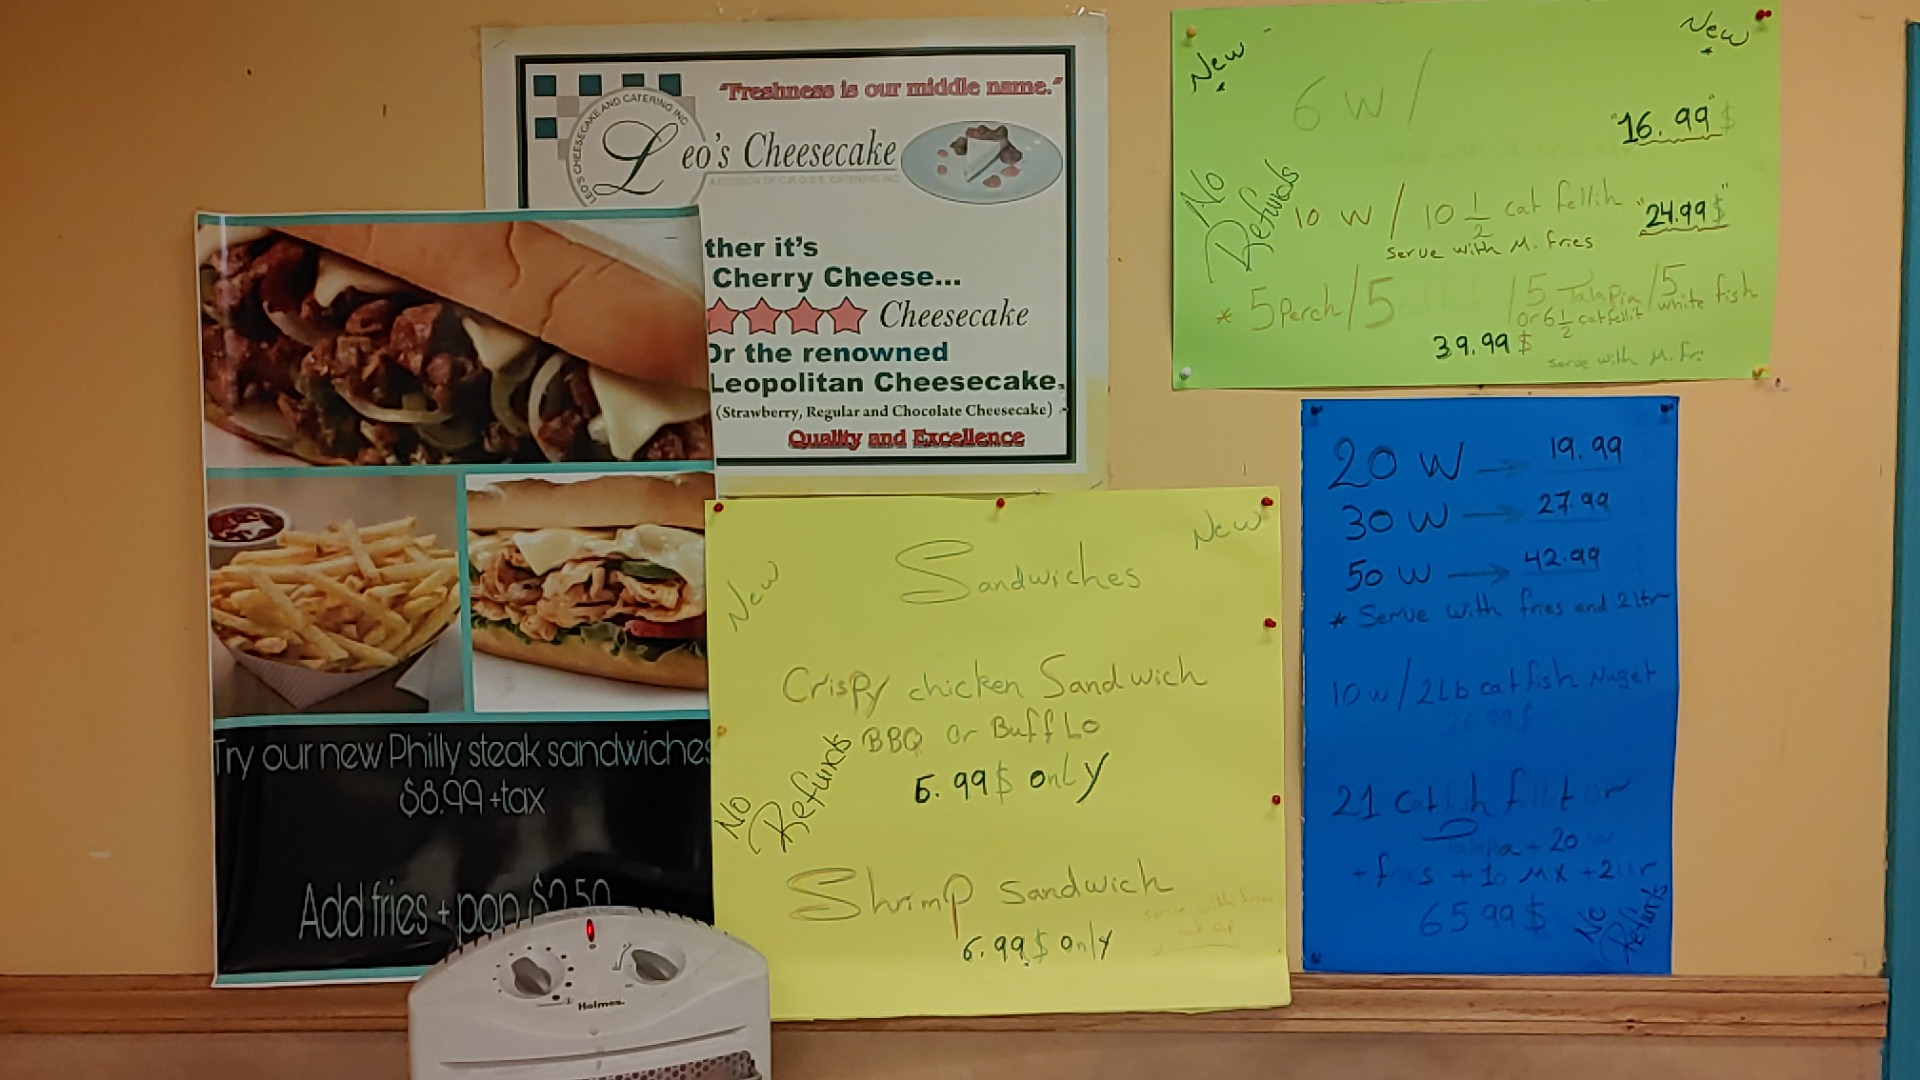 "Freshness is our middle name."
LEO'S CHEESECAKE AND CATERING INC
Leo's Cheesecake
A DIVISION OF C.R.O.S.S. CATERING INC
ther it's
Cherry Cheese...
Cheesecake
Or the renowned
Leopolitan Cheesecake.
(Strawberry, Regular and Chocolate Cheesecake)
Quality and Excellence
Try our new Philly steak sandwiches
$8.99 +tax
Add fries + pop $2.50
Holmes
New New
Sandwiches
Crispy chicken Sandwich
BBQ or BuffLo
.99$ only
No Refunds
Shrimp Sandwich
6.99$ only
New New
6 W /
"16.99"$
No Refunds
10 W / 10 1/2 cat fellih "24.99$"
Serve with M. fries
* 5 Perch / 5 / 5 Talapia / 5 white fish
or 6 1/2 catfellit
39.99$
serve with M. Fr.
20 W → 19.99
30 W → 27.99
50 W → 42.99
* Serve with fries and 2 ltr
10 W / 2Lb catfish Nuget
21 Catfish fillt or
Talapia + 20
+ fries + 10 MX + 2 ltr
65.99$
No Refunds